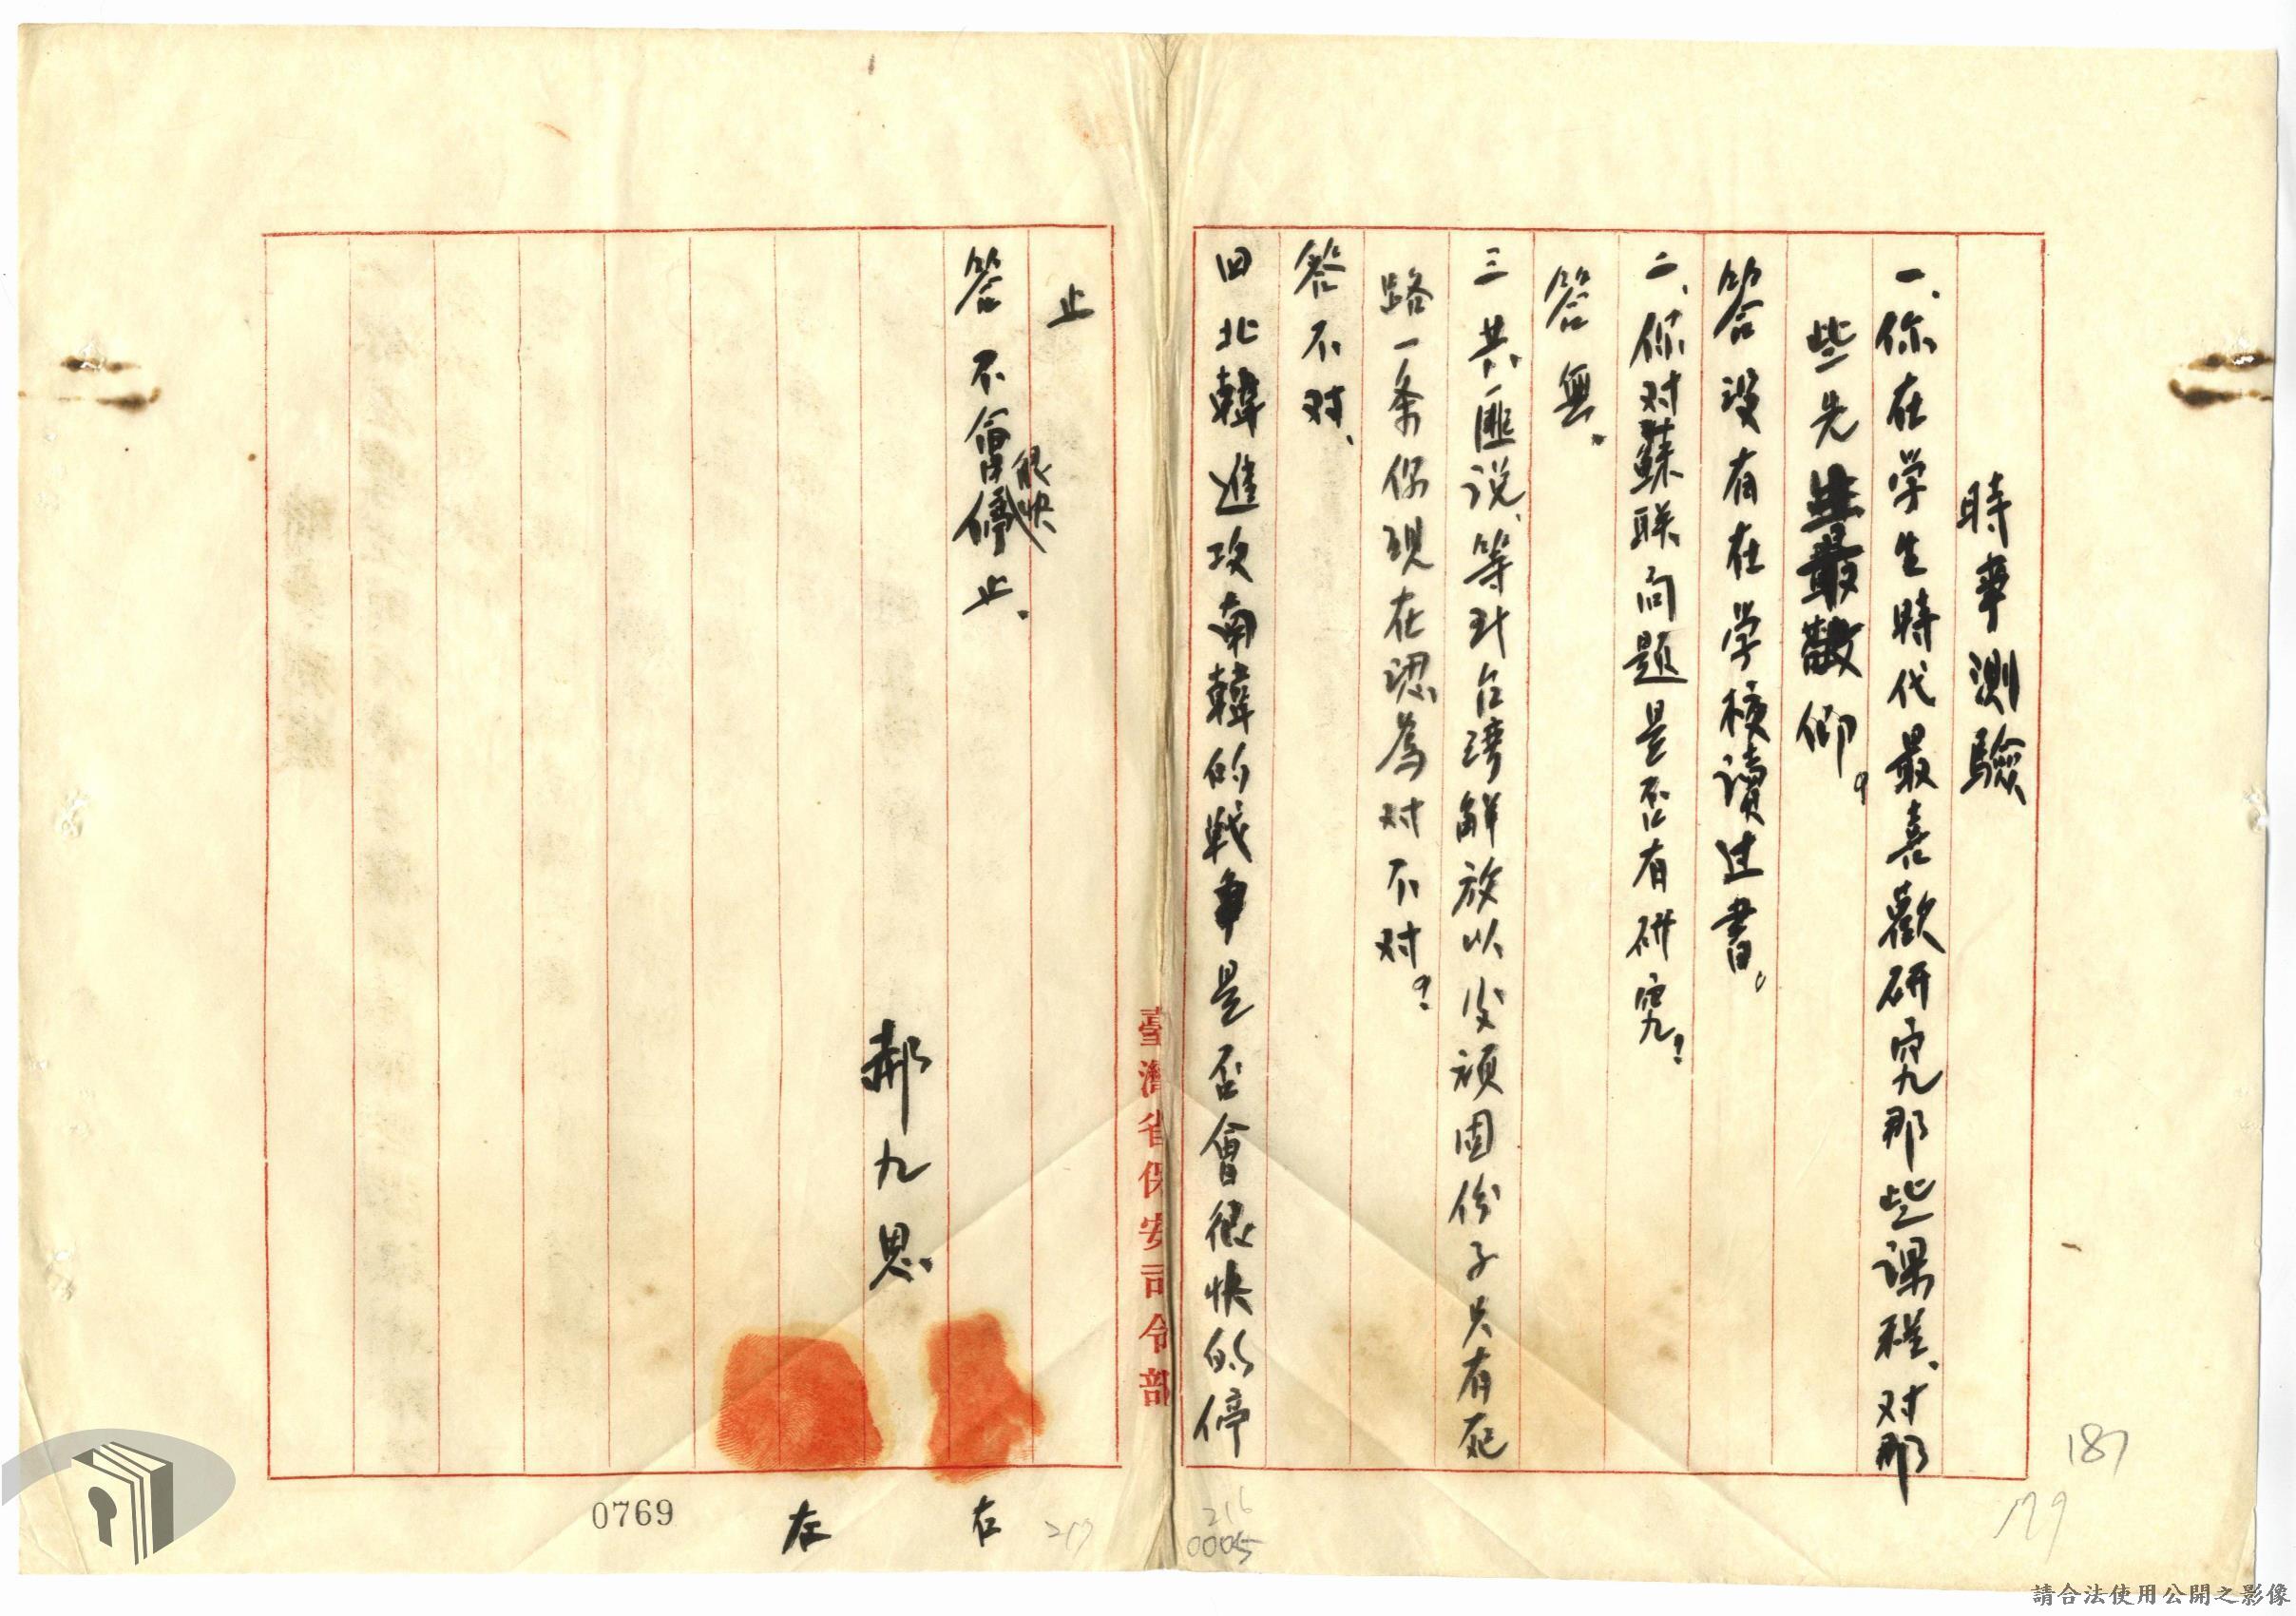 時事測驗
一、你在学生時代最喜歡研究那些課程、对那
些先生最敬仰。
答没有在学校讀过書。
二、你对蘇联问题是否有研究?
答無。
三共匪说、等到台湾解放以後頑固份子只有死
路一条你現在認為对不对?
答不对、
四北韓進攻南韓的战争是否會很快的停
止
答不會很快停止.
郝九思
左
右
臺灣省保安司令部
0769
217
216
0005
187
179
請合法使用公開之影像